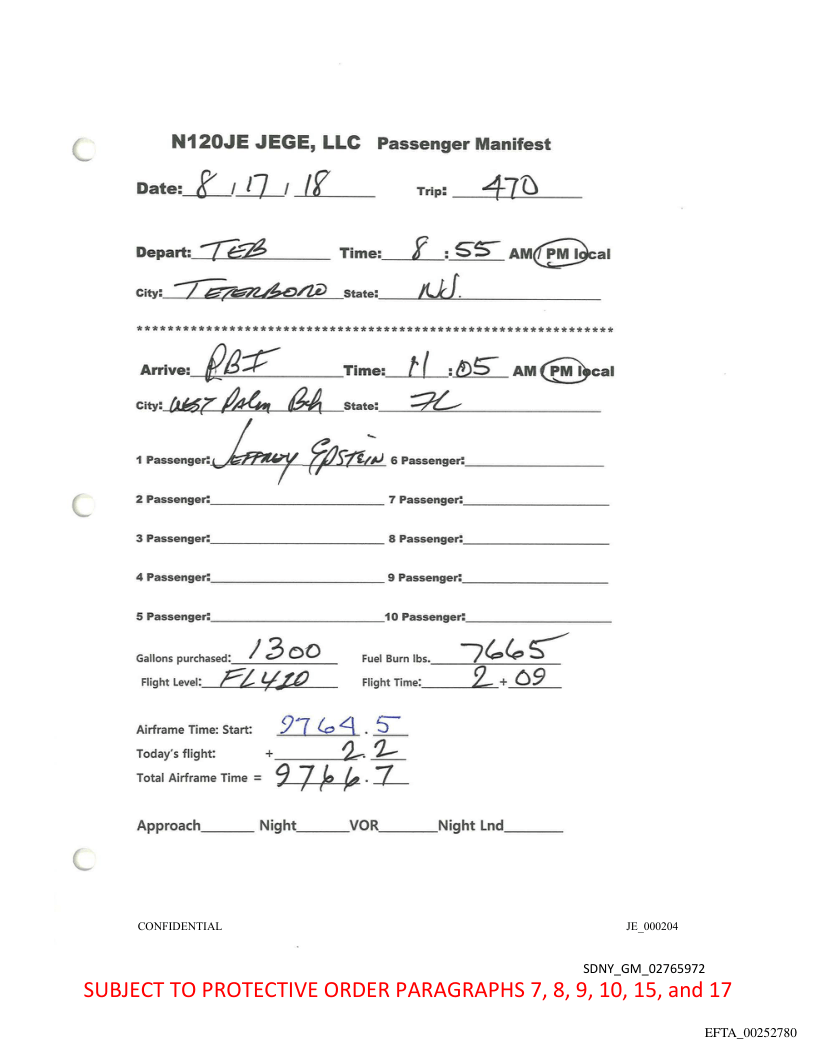 N120JE JEGE, LLC Passenger Manifest
Date: 8 / 17 / 18 Trip: 470
Depart: TEB Time: 8 : 55 AM / PM local
City: TETERBORO State: NJ.
************************************************************
Arrive: PBI Time: 11 : 05 AM / PM local
City: WEST Palm Bch State: FL
1 Passenger: JEFFREY EPSTEIN 6 Passenger:
2 Passenger: 7 Passenger:
3 Passenger: 8 Passenger:
4 Passenger: 9 Passenger:
5 Passenger: 10 Passenger:
Gallons purchased: 1300 Fuel Burn lbs. 7665
Flight Level: FL410 Flight Time: 2 + 09
Airframe Time: Start: 9764.5
Today's flight: + 2.2
Total Airframe Time = 9766.7
Approach Night VOR Night Lnd
CONFIDENTIAL JE_000204
SDNY_GM_02765972
SUBJECT TO PROTECTIVE ORDER PARAGRAPHS 7, 8, 9, 10, 15, and 17
EFTA_00252780